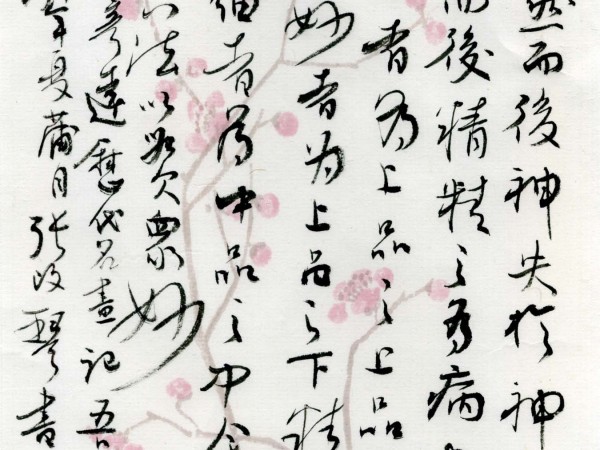 然而後神失於神
而後精精之為病
者為上品之上品
妙者为上品之下精
細者為中品之中
六法以貫衆妙
彥遠歷代名畫記
年夏蒲月張改琴書